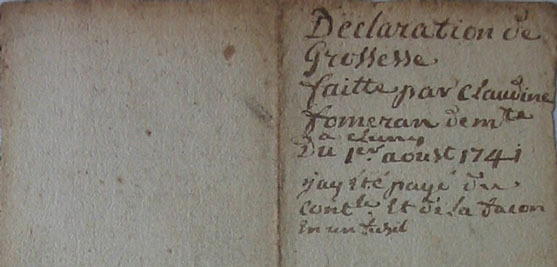 Déclaration de
Grossesse
faitte par claudine
fomeran dem.te
a cluny
Du 1er aoust 1741
j'ay été payé du
contle Et de la facon
En un fusil